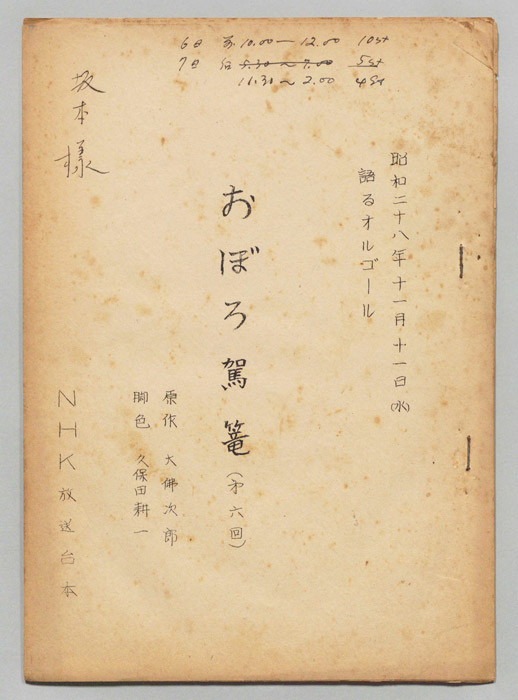 6日 前 10.00 — 12.00 10st
7日 后 5.30 〜 9.00 5st
11.30 〜 2.00 4st
坂本様
昭和二十八年十一月十一日(水)
語るオルゴール
おぼろ駕篭(第六回)
原作 大佛次郎
脚色 久保田耕一
NHK放送台本